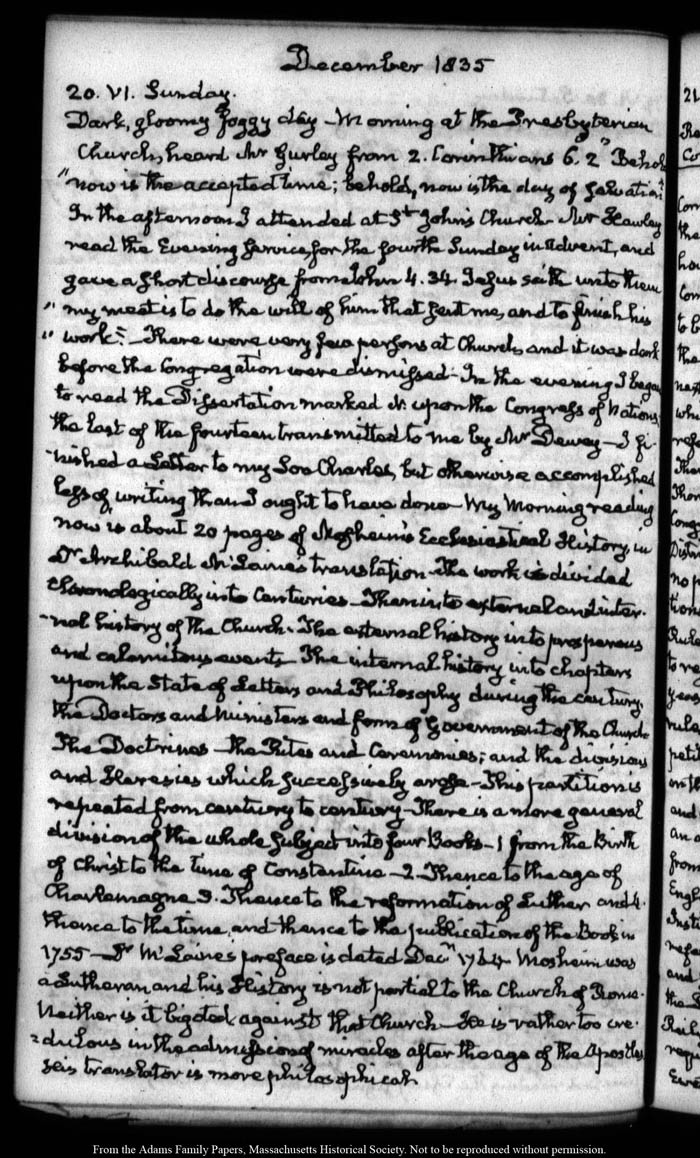 December 1835
20. VI. Sunday.
Dark, gloomy foggy day – Morning at the Presbyterian
Church, heard Mr Gurley from 2. Corinthians 6. 2 "Behold
"now is the accepted time; behold, now is the day of salvation"
In the afternoon I attended at St John's Church – Mr Hawley
read the Evening Service, for the fourth Sunday in Advent, and
gave a short discourse from John 4. 34. Jesus saith unto them
" my meat is to do the will of him that sent me, and to finish his
" work" – There were very few persons at Church, and it was dark
before the Congregation were dismissed – In the evening I began
to read the Dissertation marked N. upon the Congress of Nations,
the last of the fourteen transmitted to me by Mr Dewey – I fi-
-nished a Letter to my Son Charles, but otherwise accomplished
less of writing than I ought to have done – My Morning reading
now is about 20 pages of Mosheim's Ecclesiastical History, in
Dr Archibald McLaine's translation – The work is divided
chronologically into Centuries – Then into external and inter-
-nal history of the Church – The external history into prosperous
and calamitous events – The internal history into chapters
upon the State of Letters and Philosophy during the century,
the Doctors and Ministers and form of Government of the Church
The Doctrines – the Rites and Ceremonies; and the divisions
and Heresies which successively arose – This partition is
repeated from century to century – There is a more general
division of the whole subject into four Books – 1 from the Birth
of Christ to the time of Constantine – 2. Thence to the age of
Charlemagne 3. Thence to the reformation of Luther and 4.
thence to the time, and thence to the publication of the Book in
1755 – Dr McLaine's preface is dated Decr 1764 Mosheim was
a Lutheran and his History is not partial to the Church of Rome.
Neither is it bigoted against that Church – He is rather too cre-
-dulous in the admission of miracles after the age of the Apostles
His translator is more philosophical.
From the Adams Family Papers, Massachusetts Historical Society. Not to be reproduced without permission.